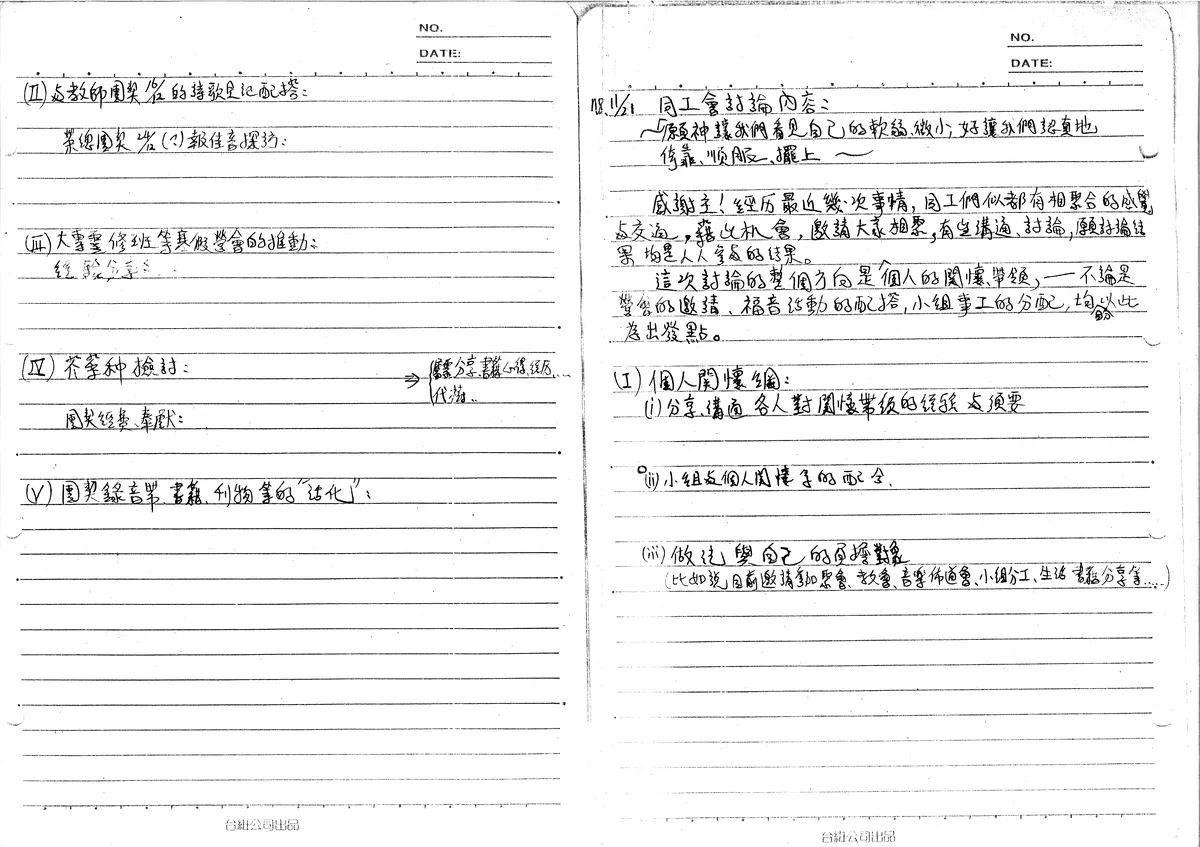 NO.
DATE:
(II) 与教師團契 12/6 的詩歌見証配搭:
榮總團契 (二) 報佳音探訪:
(III) 大專靈修班等寒假營會的推動:
經驗分享:...
(IV) 芥菜种檢討:
⇒ 分享、書籍心得、經历....
代禱..
團契經費、奉獻:
(V) 團契錄音帶、書籍、刊物等的"活化":
台紙公司出品
NO.
DATE:
78. 11/21 同工會討論內容:
~願神讓我們看見自己的軟弱、微小; 好讓我們認真地
倚靠、順服、擺上 ~
感謝主! 經历最近幾次事情, 同工們似都有相聚合的感覺
与交通, 藉此机會, 邀請大家相聚, 有些溝通、討論, 願討論結
果均是人人參与的結果。
這次討論的整個方向是"個人的關懷、帶領, — 不論是
營會的邀請、福音活動的配搭, 小組事工的分配, 均以此
為出發點。
(I) 個人關懷網:
(i) 分享、溝通 各人對關懷帶領的經驗与須要
(ii) 小組与個人關懷 的配合.
(iii) 做法與自己的負擔對象
(比如說 目前邀請參加聚會、教會、音樂佈道會、小組分工、生活 書籍分享等.....)
台紙公司出品